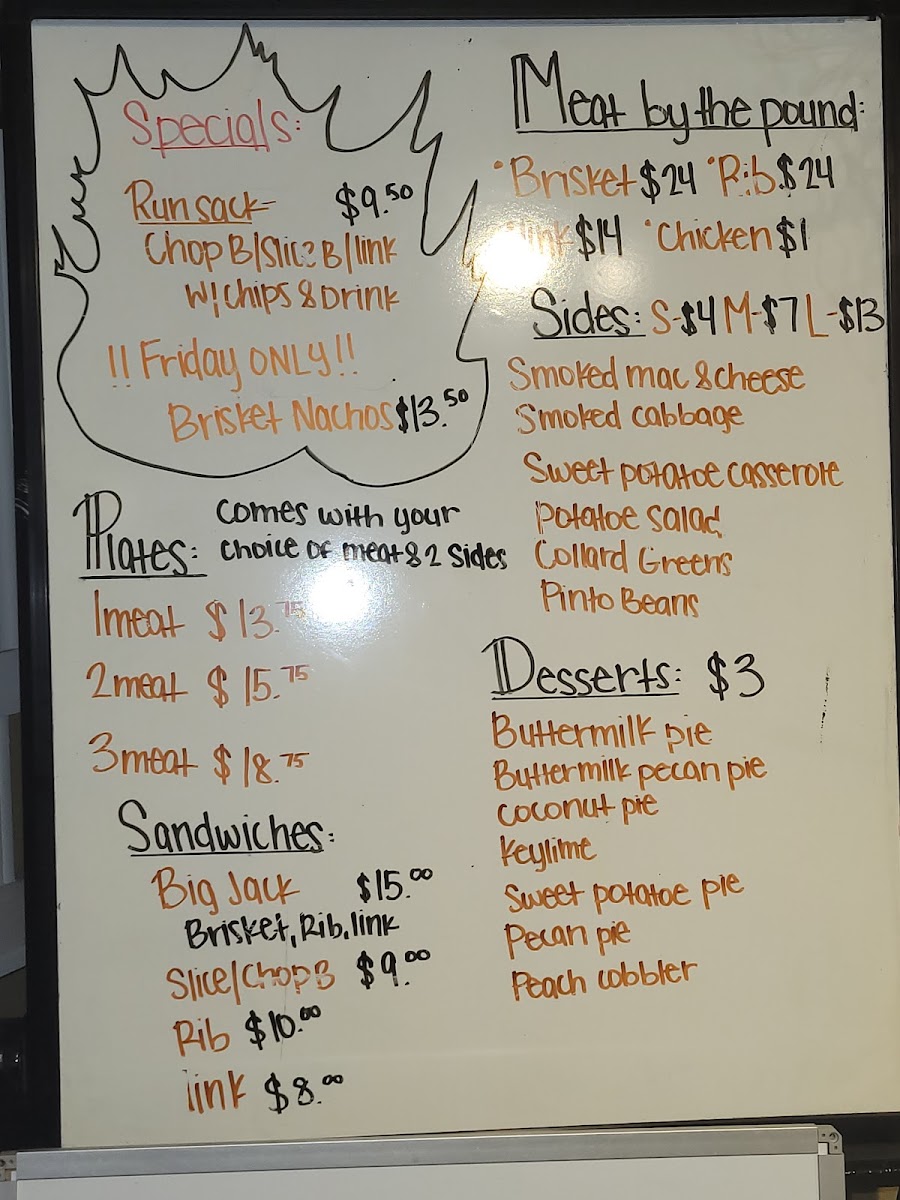 Specials:
Run sack- $9.50
Chop B/Slice B/link
w/chips & Drink
!! Friday ONLY!!
Brisket Nachos $13.50
Plates: comes with your
choice of meat & 2 sides
1meat $13.75
2meat $15.75
3meat $18.75
Sandwiches:
Big Jack $15.00
Brisket, Rib, link
Slice/Chop B $9.00
Rib $10.00
link $8.00
Meat by the pound:
•Brisket $24 •Rib $24
link $14 •Chicken $1
Sides: S-$4 M-$7 L-$13
Smoked mac & cheese
Smoked cabbage
Sweet potatoe casserole
Potatoe Salad
Collard Greens
Pinto Beans
Desserts: $3
Buttermilk pie
Buttermilk pecan pie
coconut pie
Keylime
Sweet potatoe pie
Pecan pie
Peach cobbler